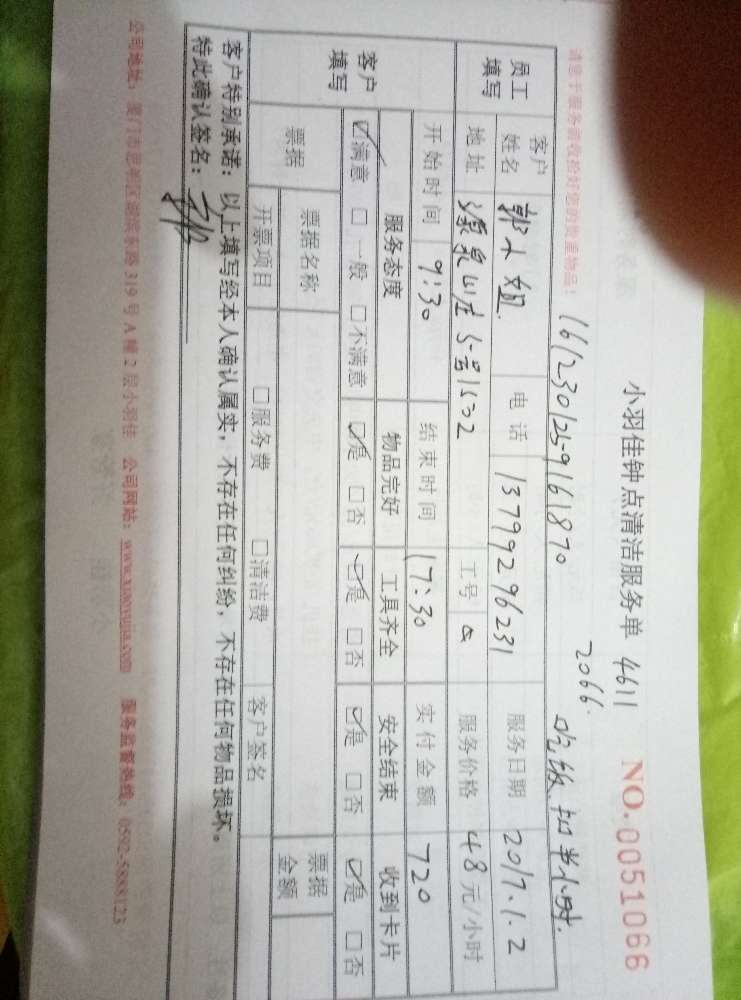 小羽佳钟点清洁服务单 4611 NO.0051066
2066.
1612301259161870 吃饭扣半小时.
请您于服务前收捡好您的贵重物品!
员工填写 客户姓名 郭小姐. 电话 13799296231 服务日期 2017.1.2
地址 源泉山庄5号1502 工号 服务价格 48元/小时
客户填写 开始时间 9:30 结束时间 17:30 实付金额 720
服务态度 物品完好 工具齐全 安全结束 收到卡片
☑满意 □一般 □不满意 ☑是 □否 ☑是 □否 ☑是 □否 ☑是 □否
票据 票据名称 票据金额
开票项目 □服务费 □清洁费 客户签名
客户特别承诺:以上填写经本人确认属实,不存在任何纠纷,不存在任何物品损坏。
特此确认签名:
公司地址:厦门市思明区湖滨东路319号A幢2层小羽佳 公司网站:www.xiaoyujia.com 服务监督热线:0592-5888123